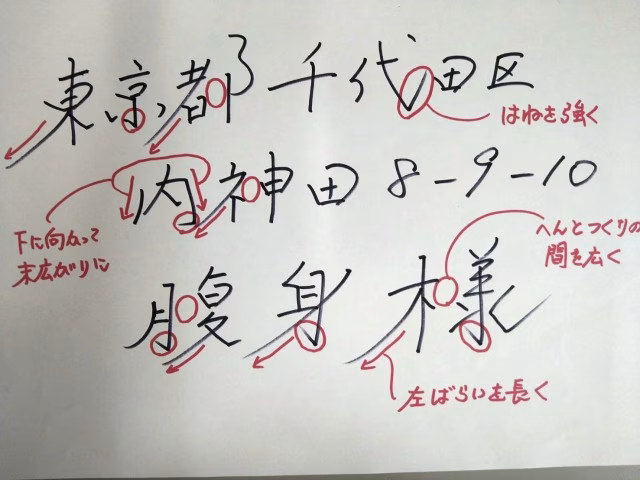 東京都千代田区
はねを強く
内神田 8-9-10
下に向かって
末広がりに
へんとつくりの
間を広く
腹身 様
左ばらいを長く